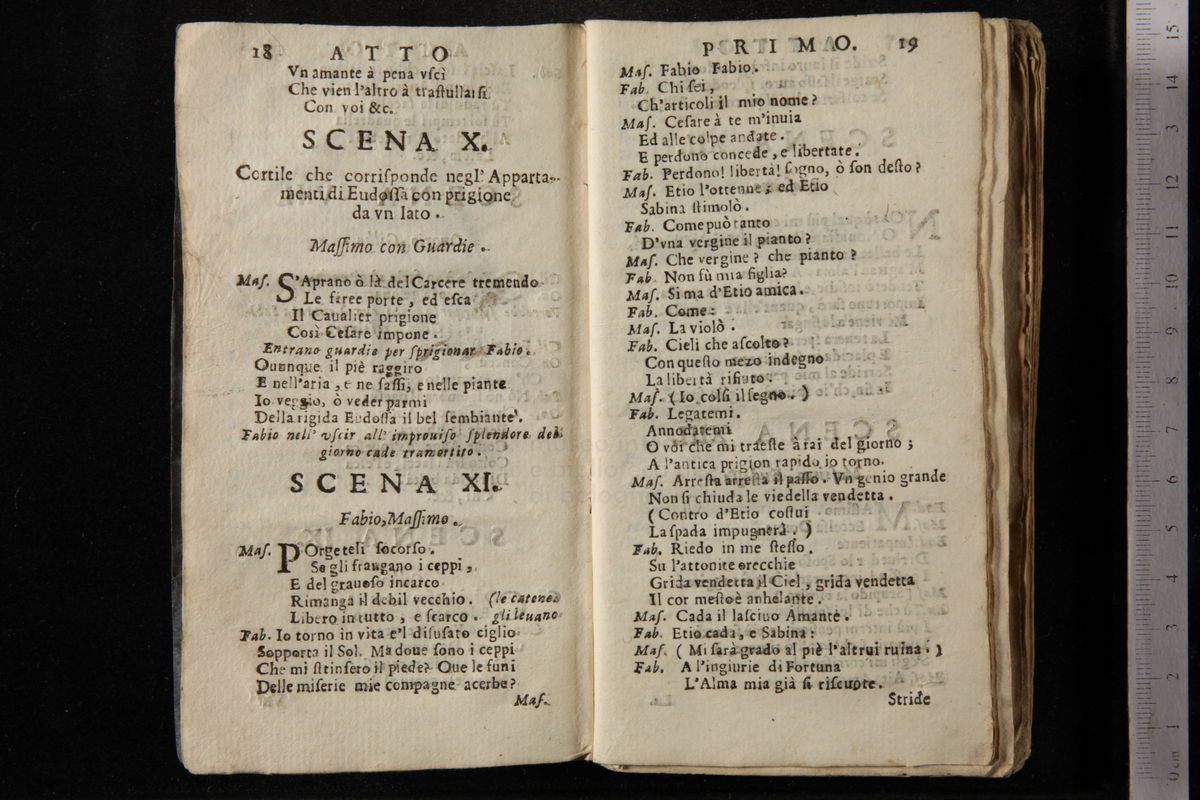 18 ATTO
Vn amante à pena vſcì
Che vien l'altro à traſtullarſi
Con voi &c.
SCENA X.
Cortile che corriſponde negl' Apparta-
menti di Eudoſſa con prigione
da vn lato.
Maſſimo con Guardie.
Maſ. S'Aprano ò là del Carcere tremendo
Le feree porte, ed eſca
Il Caualier prigione
Così Ceſare impone.
Entrano guardie per ſprigionar Fabio.
Ouunque il piè raggiro
E nell'aria, e ne ſaſſi, e nelle piante
Io veggio, ò veder parmi
Della rigida Eudoſſa il bel ſembiante.
Fabio nell' vſcir all' improuiſo ſplendore del
giorno cade tramortito.
SCENA XI.
Fabio, Maſſimo.
Maſ. POrgeteli ſocorſo.
Se gli frangano i ceppi,
E del grauoſo incarco
Rimanga il debil vecchio. (le catene
Libero in tutto, e ſcarco. gli leuano
Fab. Io torno in vita e'l diſuſato ciglio
Sopporta il Sol. Ma doue ſono i ceppi
Che mi ſtrinſero il piede? Oue le funi
Delle miſerie mie compagne acerbe?
Maſ.
PRIMO. 19
Maſ. Fabio Fabio.
Fab. Chi ſei,
Ch'articoli il mio nome?
Maſ. Ceſare à te m'inuia
Ed alle colpe andate.
E perdono concede, e libertate.
Fab. Perdono! libertà! ſogno, ò ſon deſto?
Maſ. Etio l'ottenne; ed Etio
Sabina ſtimolò.
Fab. Come può tanto
D'vna vergine il pianto?
Maſ. Che vergine? che pianto?
Fab. Non fù mia figlia?
Maſ. Si ma d'Etio amica.
Fab. Come:
Maſ. La violò.
Fab. Cieli che aſcolto?
Con queſto mezo indegno
La libertà rifiuto.
Maſ. (Io colſi il ſegno.)
Fab. Legatemi.
Annodatemi
O voi che mi traeſte à rai del giorno;
A l'antica prigion rapido io torno.
Maſ. Arreſta arreſta il paſſo. Vn genio grande
Non ſi chiuda le vie della vendetta.
(Contro d'Etio coſtui
La ſpada impugnerà.)
Fab. Riedo in me ſteſſo.
Su l'attonite orecchie
Grida vendetta il Ciel, grida vendetta
Il cor meſto è anhelante.
Maſ. Cada il laſciuo Amante.
Fab. Etio cada, e Sabina:
Maſ. (Mi ſarà grado al piè l'altrui ruina.)
Fab. A l'ingiurie di Fortuna
L'Alma mia già ſi riſcuote.
Stride